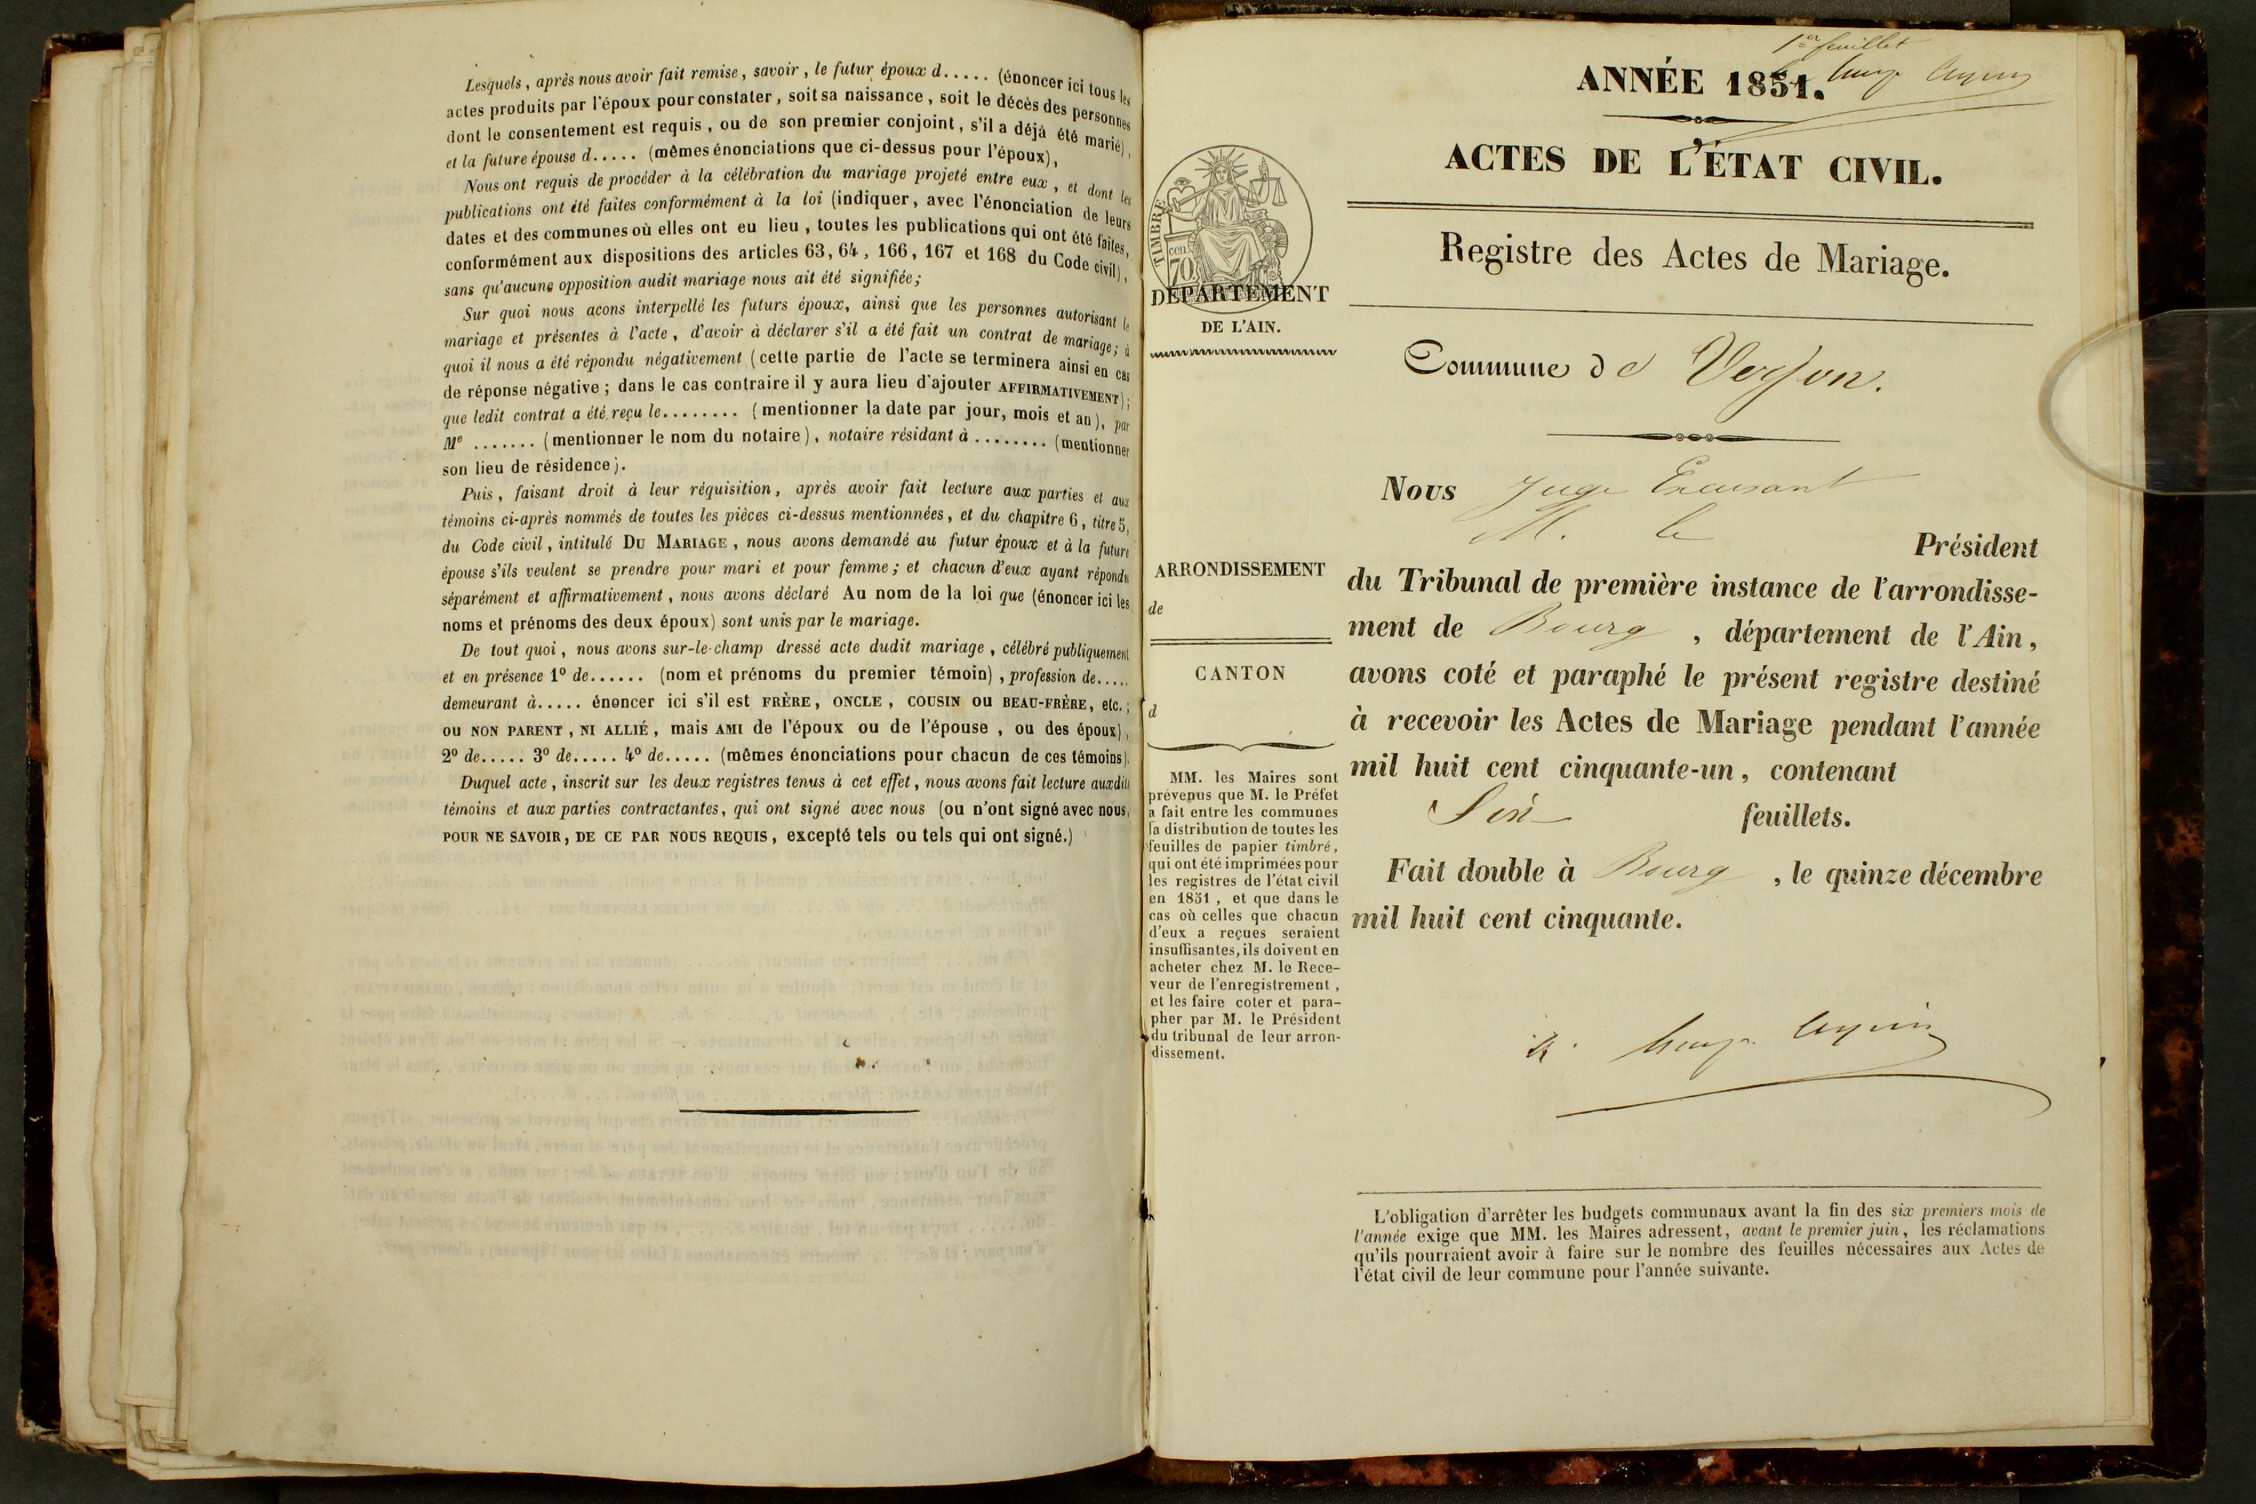 Lesquels, après nous avoir fait remise, savoir, le futur époux d..... (énoncer ici tous les
actes produits par l'époux pour constater, soit sa naissance, soit le décès des personnes
dont le consentement est requis, ou de son premier conjoint, s'il a déjà été marié),
et la future épouse d..... (mêmes énonciations que ci-dessus pour l'époux),
Nous ont requis de procéder à la célébration du mariage projeté entre eux, et dont les
publications ont été faites conformément à la loi (indiquer, avec l'énonciation de leurs
dates et des communes où elles ont eu lieu, toutes les publications qui ont été faites,
conformément aux dispositions des articles 63, 64, 166, 167 et 168 du Code civil),
sans qu'aucune opposition audit mariage nous ait été signifiée;
Sur quoi nous acons interpellé les futurs époux, ainsi que les personnes autorisant le
mariage et présentes à l'acte, d'avoir à déclarer s'il a été fait un contrat de mariage; à
quoi il nous a été répondu négativement (cette partie de l'acte se terminera ainsi en cas
de réponse négative; dans le cas contraire il y aura lieu d'ajouter AFFIRMATIVEMENT);
que ledit contrat a été reçu le........ (mentionner la date par jour, mois et an), par
Me ....... (mentionner le nom du notaire), notaire résidant à ........ (mentionner
son lieu de résidence).
Puis, faisant droit à leur réquisition, après avoir fait lecture aux parties et aux
témoins ci-après nommés de toutes les pièces ci-dessus mentionnées, et du chapitre 6, titre 5,
du Code civil, intitulé DU MARIAGE, nous avons demandé au futur époux et à la future
épouse s'ils veulent se prendre pour mari et pour femme; et chacun d'eux ayant répondu
séparément et affirmativement, nous avons déclaré Au nom de la loi que (énoncer ici les
noms et prénoms des deux époux) sont unis par le mariage.
De tout quoi, nous avons sur-le-champ dressé acte dudit mariage, célébré publiquement
et en présence 1º de...... (nom et prénoms du premier témoin), profession de.....
demeurant à..... énoncer ici s'il est FRÈRE, ONCLE, COUSIN OU BEAU-FRÈRE, etc.;
OU NON PARENT, NI ALLIÉ, mais AMI de l'époux ou de l'épouse, ou des époux),
2º de..... 3º de..... 4º de..... (mêmes énonciations pour chacun de ces témoins).
Duquel acte, inscrit sur les deux registres tenus à cet effet, nous avons fait lecture auxdits
témoins et aux parties contractantes, qui ont signé avec nous (ou n'ont signé avec nous,
POUR NE SAVOIR, DE CE PAR NOUS REQUIS, excepté tels ou tels qui ont signé.)
1er feuillet
ANNÉE 1851.
ACTES DE L'ÉTAT CIVIL.
Registre des Actes de Mariage.
TIMBRE
70
DÉPARTEMENT
DE L'AIN.
Commune de Verjon.
Nous Juge Excusant
M. le Président
du Tribunal de première instance de l'arrondisse-
ment de Bourg, département de l'Ain,
avons coté et paraphé le présent registre destiné
à recevoir les Actes de Mariage pendant l'année
mil huit cent cinquante-un, contenant
Six feuillets.
Fait double à Bourg, le quinze décembre
mil huit cent cinquante.
ARRONDISSEMENT
de
CANTON
d
MM. les Maires sont
prévenus que M. le Préfet
a fait entre les communes
la distribution de toutes les
feuilles de papier timbré,
qui ont été imprimées pour
les registres de l'état civil
en 1851, et que dans le
cas où celles que chacun
d'eux a reçues seraient
insuffisantes, ils doivent en
acheter chez M. le Rece-
veur de l'enregistrement,
et les faire coter et para-
pher par M. le Président
du tribunal de leur arron-
dissement.
L'obligation d'arrêter les budgets communaux avant la fin des six premiers mois de
l'année exige que MM. les Maires adressent, avant le premier juin, les réclamations
qu'ils pourraient avoir à faire sur le nombre des feuilles nécessaires aux Actes de
l'état civil de leur commune pour l'année suivante.